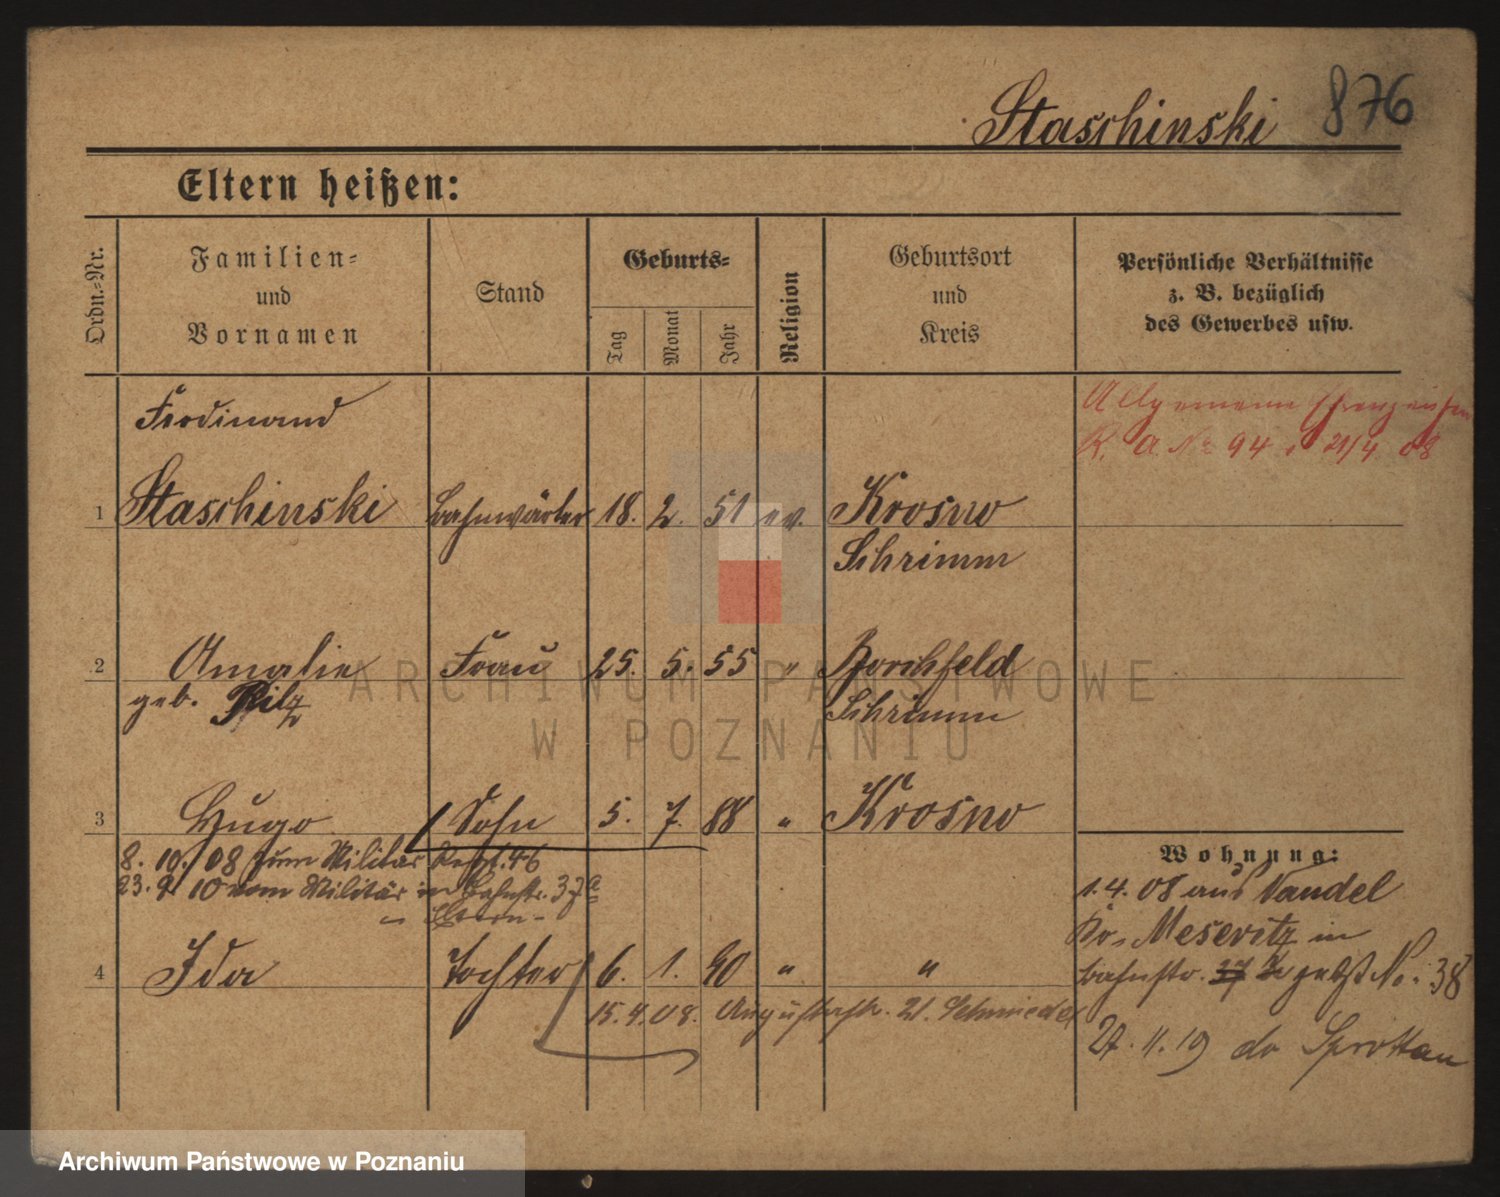 Staschinski 876
Eltern heißen:
Ordn.=Nr.
Familien=
und
Vornamen
Stand
Geburts=
Tag
Monat
Jahr
Religion
Geburtsort
und
Kreis
Persönliche Verhältnisse
z. B. bezüglich
des Gewerbes usw.
Ferdinand
1 Staschinski Bahnwärter 18. 2. 51 ev. Krosno
Schrimm
R. A. No 94 v 21/4 08
2 Amalie Frau 25. 5. 55 " Borchfeld
geb. Pilz Schrimm
3 Hugo Sohn 5. 7. 88 " Krosno
8. 10. 08 zum Militär Regt. 46
23. 9. 10 vom Militär in Bahnstr. 37a
Eltern -
4 Ida Tochter 6. 1. 90 " "
15. 4. 08. Augustastr. 21. Schmiedel
Wohnung:
1. 4. 08 aus Vandel
Kr. Meseritz in
Bahnstr. 37 No. 38
27. 11. 19 do Sprottau
ARCHIWUM PAŃSTWOWE
W POZNANIU
Archiwum Państwowe w Poznaniu